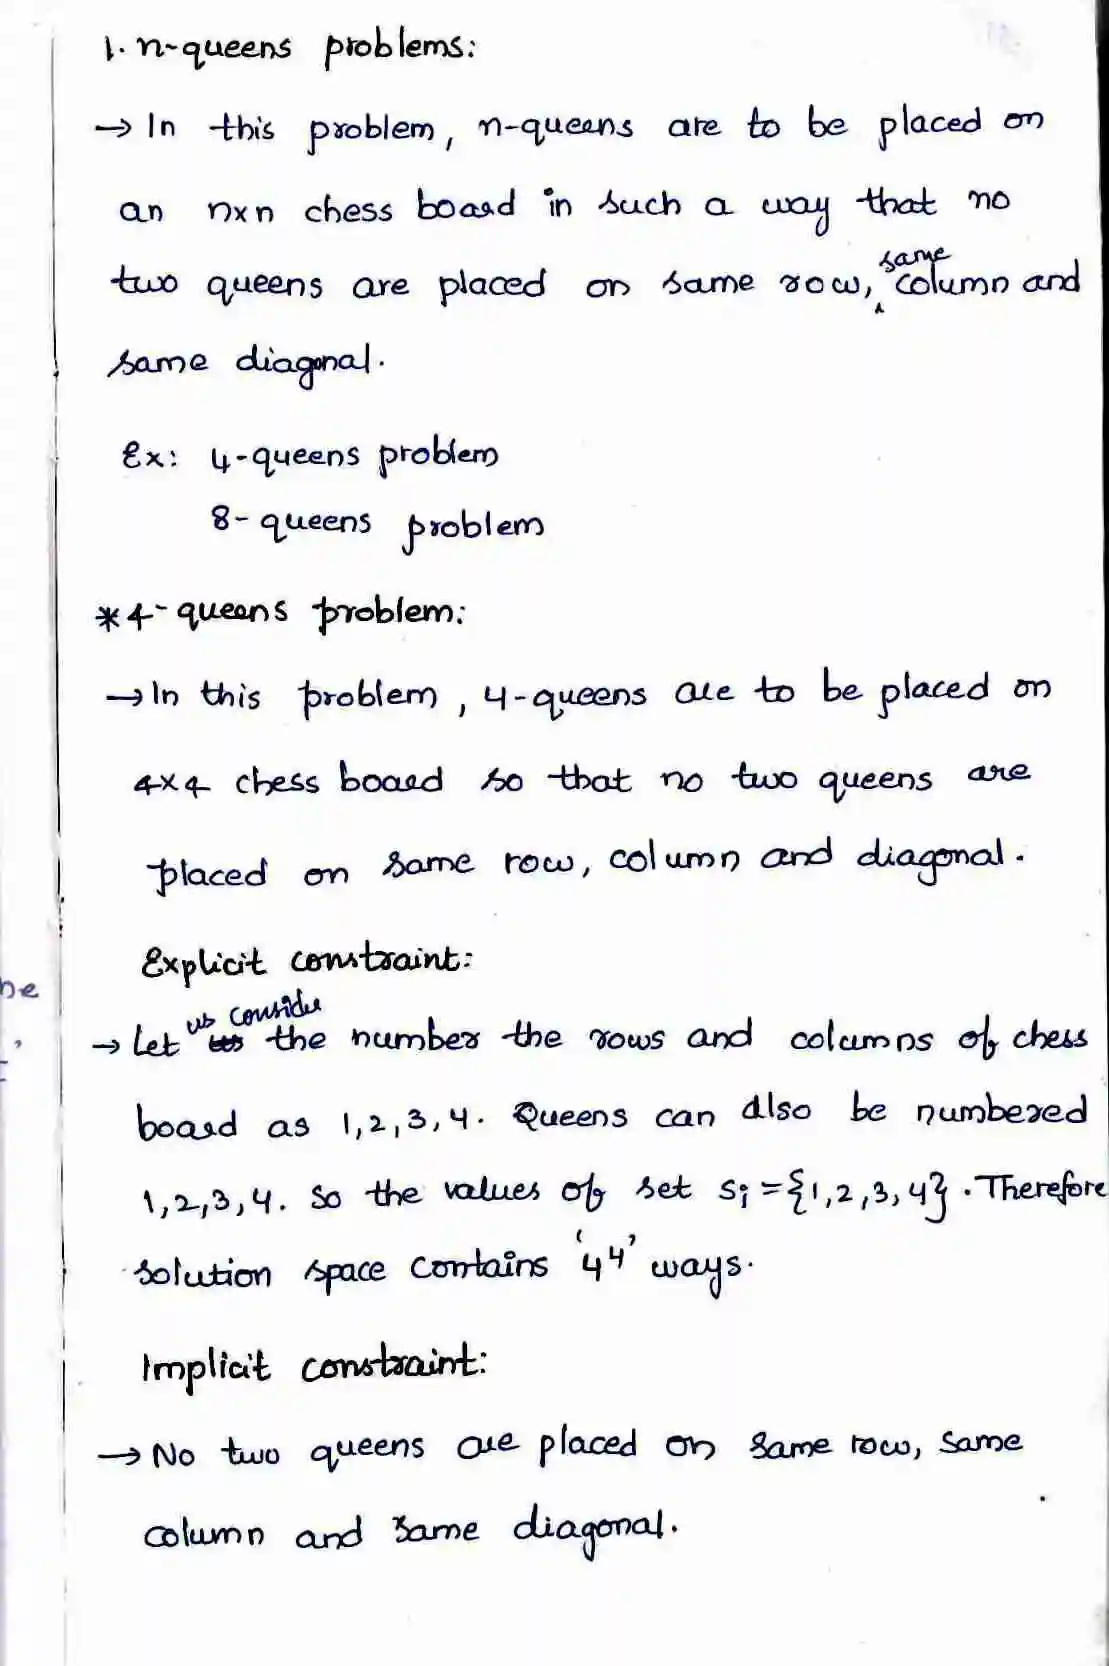 1. n-queens problems:
→ In this problem, n-queens are to be placed on
an nxn chess board in such a way that no
two queens are placed on same row, same column and
same diagonal.
Ex: 4-queens problem
8-queens problem
* 4-queens problem:
→ In this problem, 4-queens are to be placed on
4x4 chess board so that no two queens are
placed on same row, column and diagonal.
Explicit constraint:
be
→ Let us consider the number the rows and columns of chess
board as 1,2,3,4. Queens can also be numbered
1,2,3,4. So the values of set Si = {1,2,3,4}. Therefore
solution space contains '4⁴' ways.
Implicit constraint:
→ No two queens are placed on same row, same
column and same diagonal.